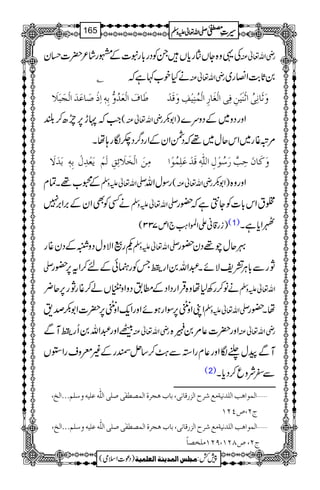 سیرتِ مصطفیٰ صلی اللہ تعالیٰ علیہ وسلم
165
رضی اللہ تعالیٰ عنہ کی یہی وہ جاں نثاریاں ہیں جن کو دربار نبوت کے مشہور شاعر حضرت حسان
بن ثابت انصاری رضی اللہ تعالیٰ عنہ نے کیا خوب کہا ہے کہ
وَثَانِیَ اثْنَیْنِ فِی الْغَارِ الْمُنِیْفِ وَقَدْ طَافَ الْعَدُوُّ بِہٖ اِذْ صَاعَدَ الْجَبَلَا
اور دو میں کے دوسرے (ابو بکر رضی اللہ تعالیٰ عنہ) جب کہ پہاڑ پر چڑھ کر بلند
مرتبہ غار میں اس حال میں تھے کہ دشمن ان کے ارد گرد چکر لگا رہا تھا۔
وَکَانَ حِبَّ رَسُوْلِ اللّٰہِ قَدْ عَلِمُوْا مِنَ الْخَلَائِقِ لَمْ یَعْدِلْ بِہٖ بَدَلَا
اور وہ (ابوبکر رضی اللہ تعالیٰ عنہ) رسول اللہ صلی اللہ تعالیٰ علیہ وسلم کے محبوب تھے۔ تمام
مخلوق اس بات کو جانتی ہے کہ حضور صلی اللہ تعالیٰ علیہ وسلم نے کسی کو بھی ان کے برابر نہیں
ٹھہرایا ہے۔ (1) (زرقانی علی المواہب ج۱ ص۳۳۷)
بہر حال چوتھے دن حضور صلی اللہ تعالیٰ علیہ وسلم یکم ربیع الاول دوشنبہ کے دن غار
ثور سے باہر تشریف لائے۔ عبداللہ بن اریقط جس کو رہنمائی کے لئے کرایہ پر حضور صلی
اللہ تعالیٰ علیہ وسلم نے نوکر رکھ لیا تھا وہ قرارداد کے مطابق دو اونٹنیاں لے کر غار ثور پر حاضر
تھا۔ حضور صلی اللہ تعالیٰ علیہ وسلم اپنی اونٹنی پر سوار ہوئے اور ایک اونٹنی پر حضرت ابوبکر صدیق
رضی اللہ تعالیٰ عنہ اور حضرت عامر بن فہیرہ رضی اللہ تعالیٰ عنہ بیٹھے اور عبداللہ بن اُریقط آگے
آگے پیدل چلنے لگا اور عام راستہ سے ہٹ کر ساحل سمندر کے غیر معروف راستوں
سے سفر شروع کر دیا۔ (2)
المواھب اللدنیۃمع شرح الزرقانی، باب ھجرۃ المصطفٰی صلی اللّٰہ علیہ وسلم...الخ،
ج۲،ص۱۲۴
المواھب اللدنیۃمع شرح الزرقانی، باب ھجرۃ المصطفٰی صلی اللّٰہ علیہ وسلم...الخ،
ج۲،ص۱۲۸،۱۲۹ملخصاً
پیش کش: مجلس المدینۃ العلمیۃ (دعوتِ اسلامی)